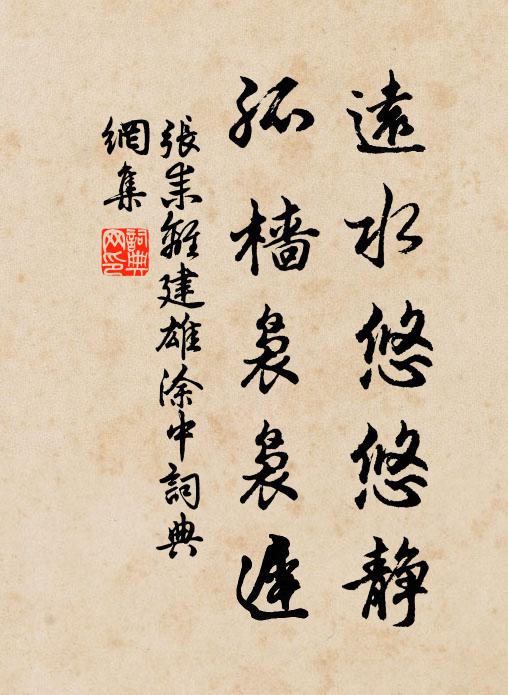 遠水悠悠静
孤檣裊裊遲
張耒離建雄涂中詞典
網集
詞典
网印